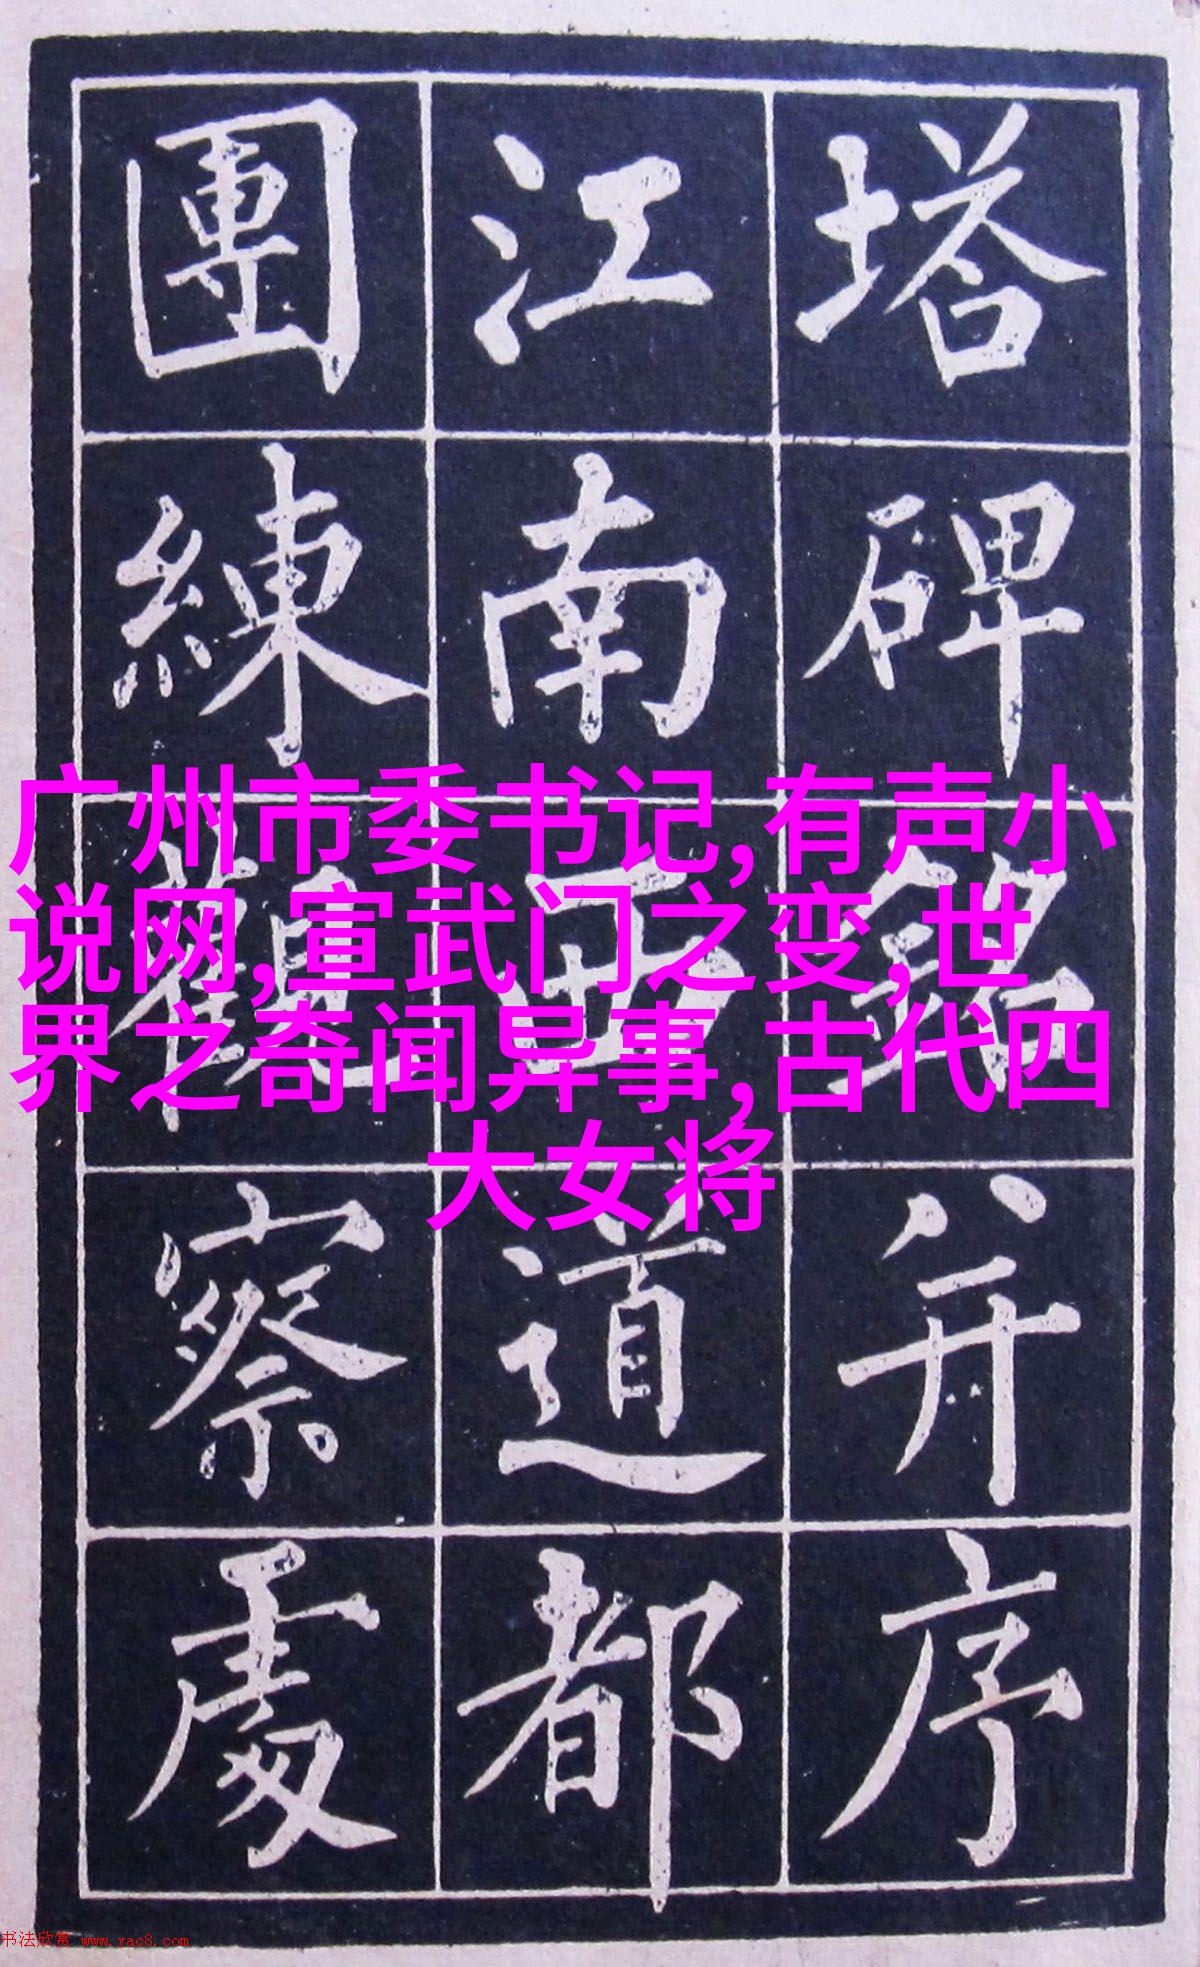 塔碑銘并序
江南西道都
團練觀察處
广州市委书记,有声小
说网,宣武门之变,世
界之奇闻异事,古代四
大女将
书法欣赏 www.yac8.com